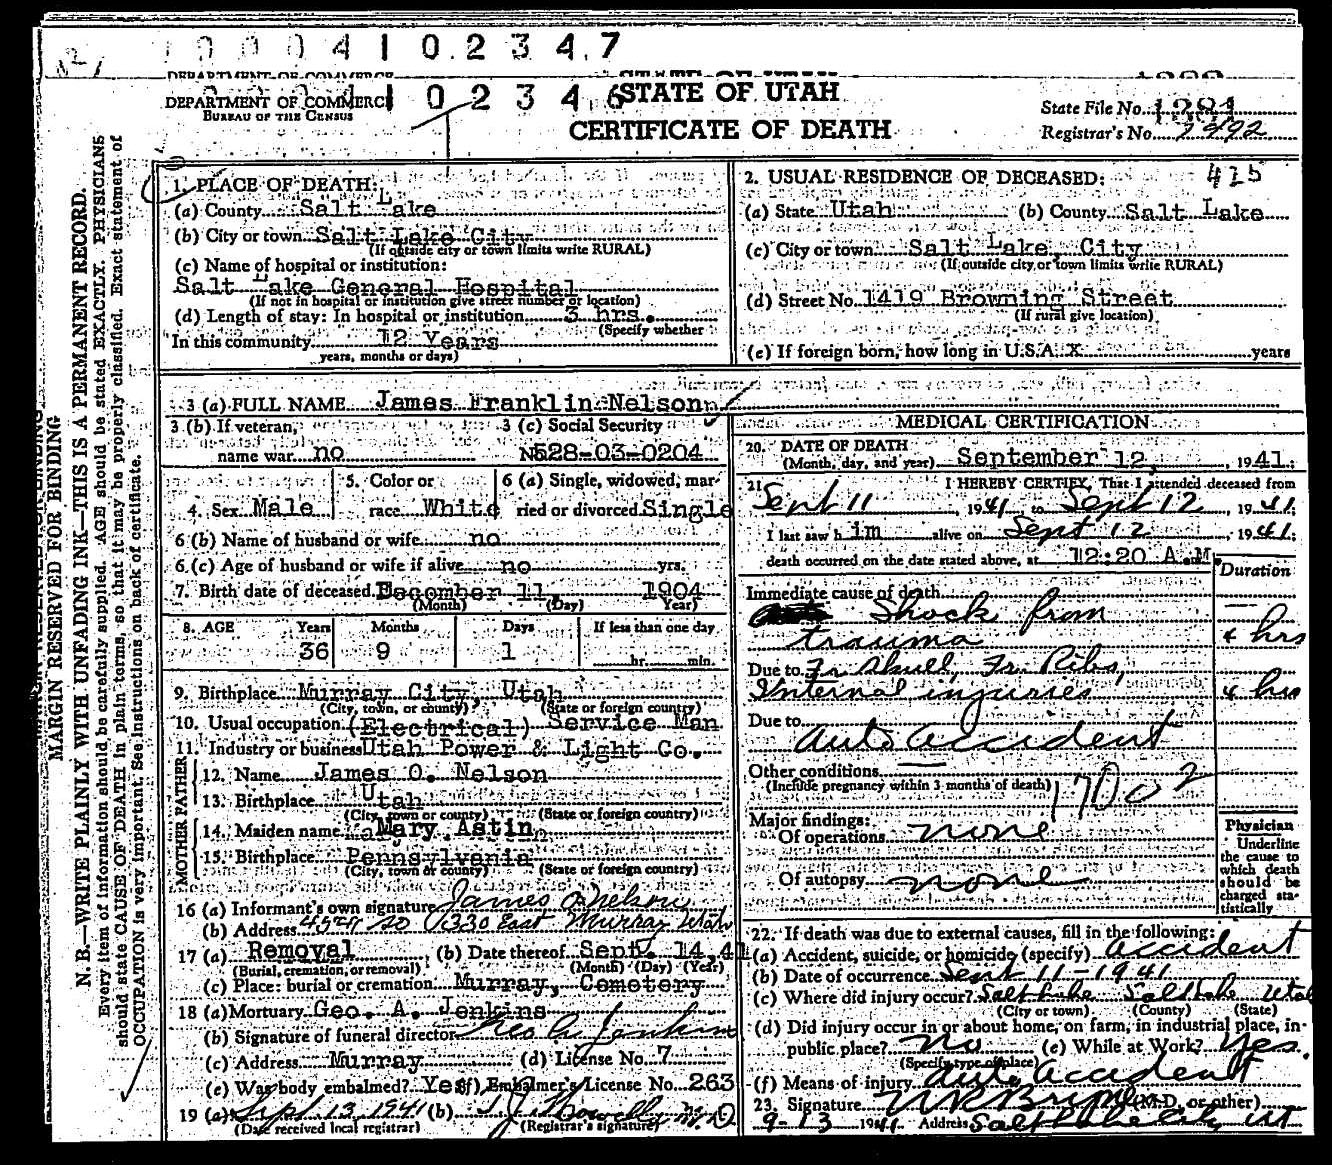 0 0 0 4 1 0 2 3 4 7
DEPARTMENT OF COMMERCE
0 0 0 4 1 0 2 3 4 6
STATE OF UTAH
DEPARTMENT OF COMMERCE
BUREAU OF THE CENSUS
CERTIFICATE OF DEATH
State File No. 1281
Registrar's No.
MARGIN RESERVED FOR BINDING
N. B.—WRITE PLAINLY WITH UNFADING INK—THIS IS A PERMANENT RECORD.
Every item of information should be carefully supplied. AGE should be stated EXACTLY. PHYSICIANS
should state CAUSE OF DEATH in plain terms, so that it may be properly classified. Exact statement of
OCCUPATION is very important. See instructions on back of certificate.
1. PLACE OF DEATH:
(a) County Salt Lake
(b) City or town Salt Lake City
(If outside city or town limits write RURAL)
(c) Name of hospital or institution:
Salt Lake General Hospital
(If not in hospital or institution give street number or location)
(d) Length of stay: In hospital or institution 3 hrs.
(Specify whether
In this community 12 Years
years, months or days)
2. USUAL RESIDENCE OF DECEASED: 415
(a) State Utah (b) County Salt Lake
(c) City or town Salt Lake, City
(If outside city or town limits write RURAL)
(d) Street No. 1419 Browning Street
(If rural give location)
(e) If foreign born, how long in U.S.A. X years
3 (a) FULL NAME James Franklin Nelson
3 (b) If veteran, name war no
3 (c) Social Security
No 528-03-0204
4. Sex Male
5. Color or race White
6 (a) Single, widowed, married or divorced Single
6 (b) Name of husband or wife no
6 (c) Age of husband or wife if alive no yrs.
7. Birth date of deceased December 11, 1904
(Month) (Day) Year)
8. AGE Years Months Days If less than one day
36 9 1 hr. min.
9. Birthplace Murray City, Utah
(City, town, or county) (State or foreign country)
10. Usual occupation (Electrical) Service Man
11. Industry or business Utah Power & Light Co.
FATHER
12. Name James O. Nelson
13. Birthplace Utah
(City, town or county) (State or foreign country)
MOTHER
14. Maiden name Mary Astin
15. Birthplace Pennsylvania
(City, town or county) (State or foreign country)
16 (a) Informant's own signature James O Nelson
(b) Address So 330 East Murray Utah
17 (a) Removal (b) Date thereof Sept. 14, 41
(Burial, cremation, or removal) (Month) (Day) (Year)
(c) Place: burial or cremation Murray, Cemetery
18 (a) Mortuary Geo. A. Jenkins
(b) Signature of funeral director Geo A. Jenkins
(c) Address Murray (d) License No. 7
(e) Was body embalmed? Yes (f) Embalmer's License No. 263
19 (a) Sept 13, 1941 (b) M.D.
(Date received local registrar) (Registrar's signature)
MEDICAL CERTIFICATION
20. DATE OF DEATH
(Month, day, and year) September 12, 1941.
21. I HEREBY CERTIFY, That I attended deceased from
Sept 11, 1941 to Sept 12, 1941.
I last saw h im alive on Sept 12, 1941;
death occurred on the date stated above, at 12:20 A.M.
Duration
Immediate cause of death
Shock from
trauma 4 hrs
Due to Fr Skull, Fr. Ribs,
Internal injuries 4 hrs
Due to
Auto accident
Other conditions
(Include pregnancy within 3 months of death)
Major findings:
Of operations none
Of autopsy none
Physician
Underline
the cause to
which death
should be
charged sta-
tistically
22. If death was due to external causes, fill in the following:
(a) Accident, suicide, or homicide (specify) accident
(b) Date of occurrence Sept 11-1941
(c) Where did injury occur? Salt Lake Salt Lake Utah
(City or town) (County) (State)
(d) Did injury occur in or about home, on farm, in industrial place, in
public place? No (e) While at Work? Yes.
(Specify type of place)
(f) Means of injury Auto Accident
23. Signature (M.D. or other)
9-13 1941 Address Salt Lake City Ut